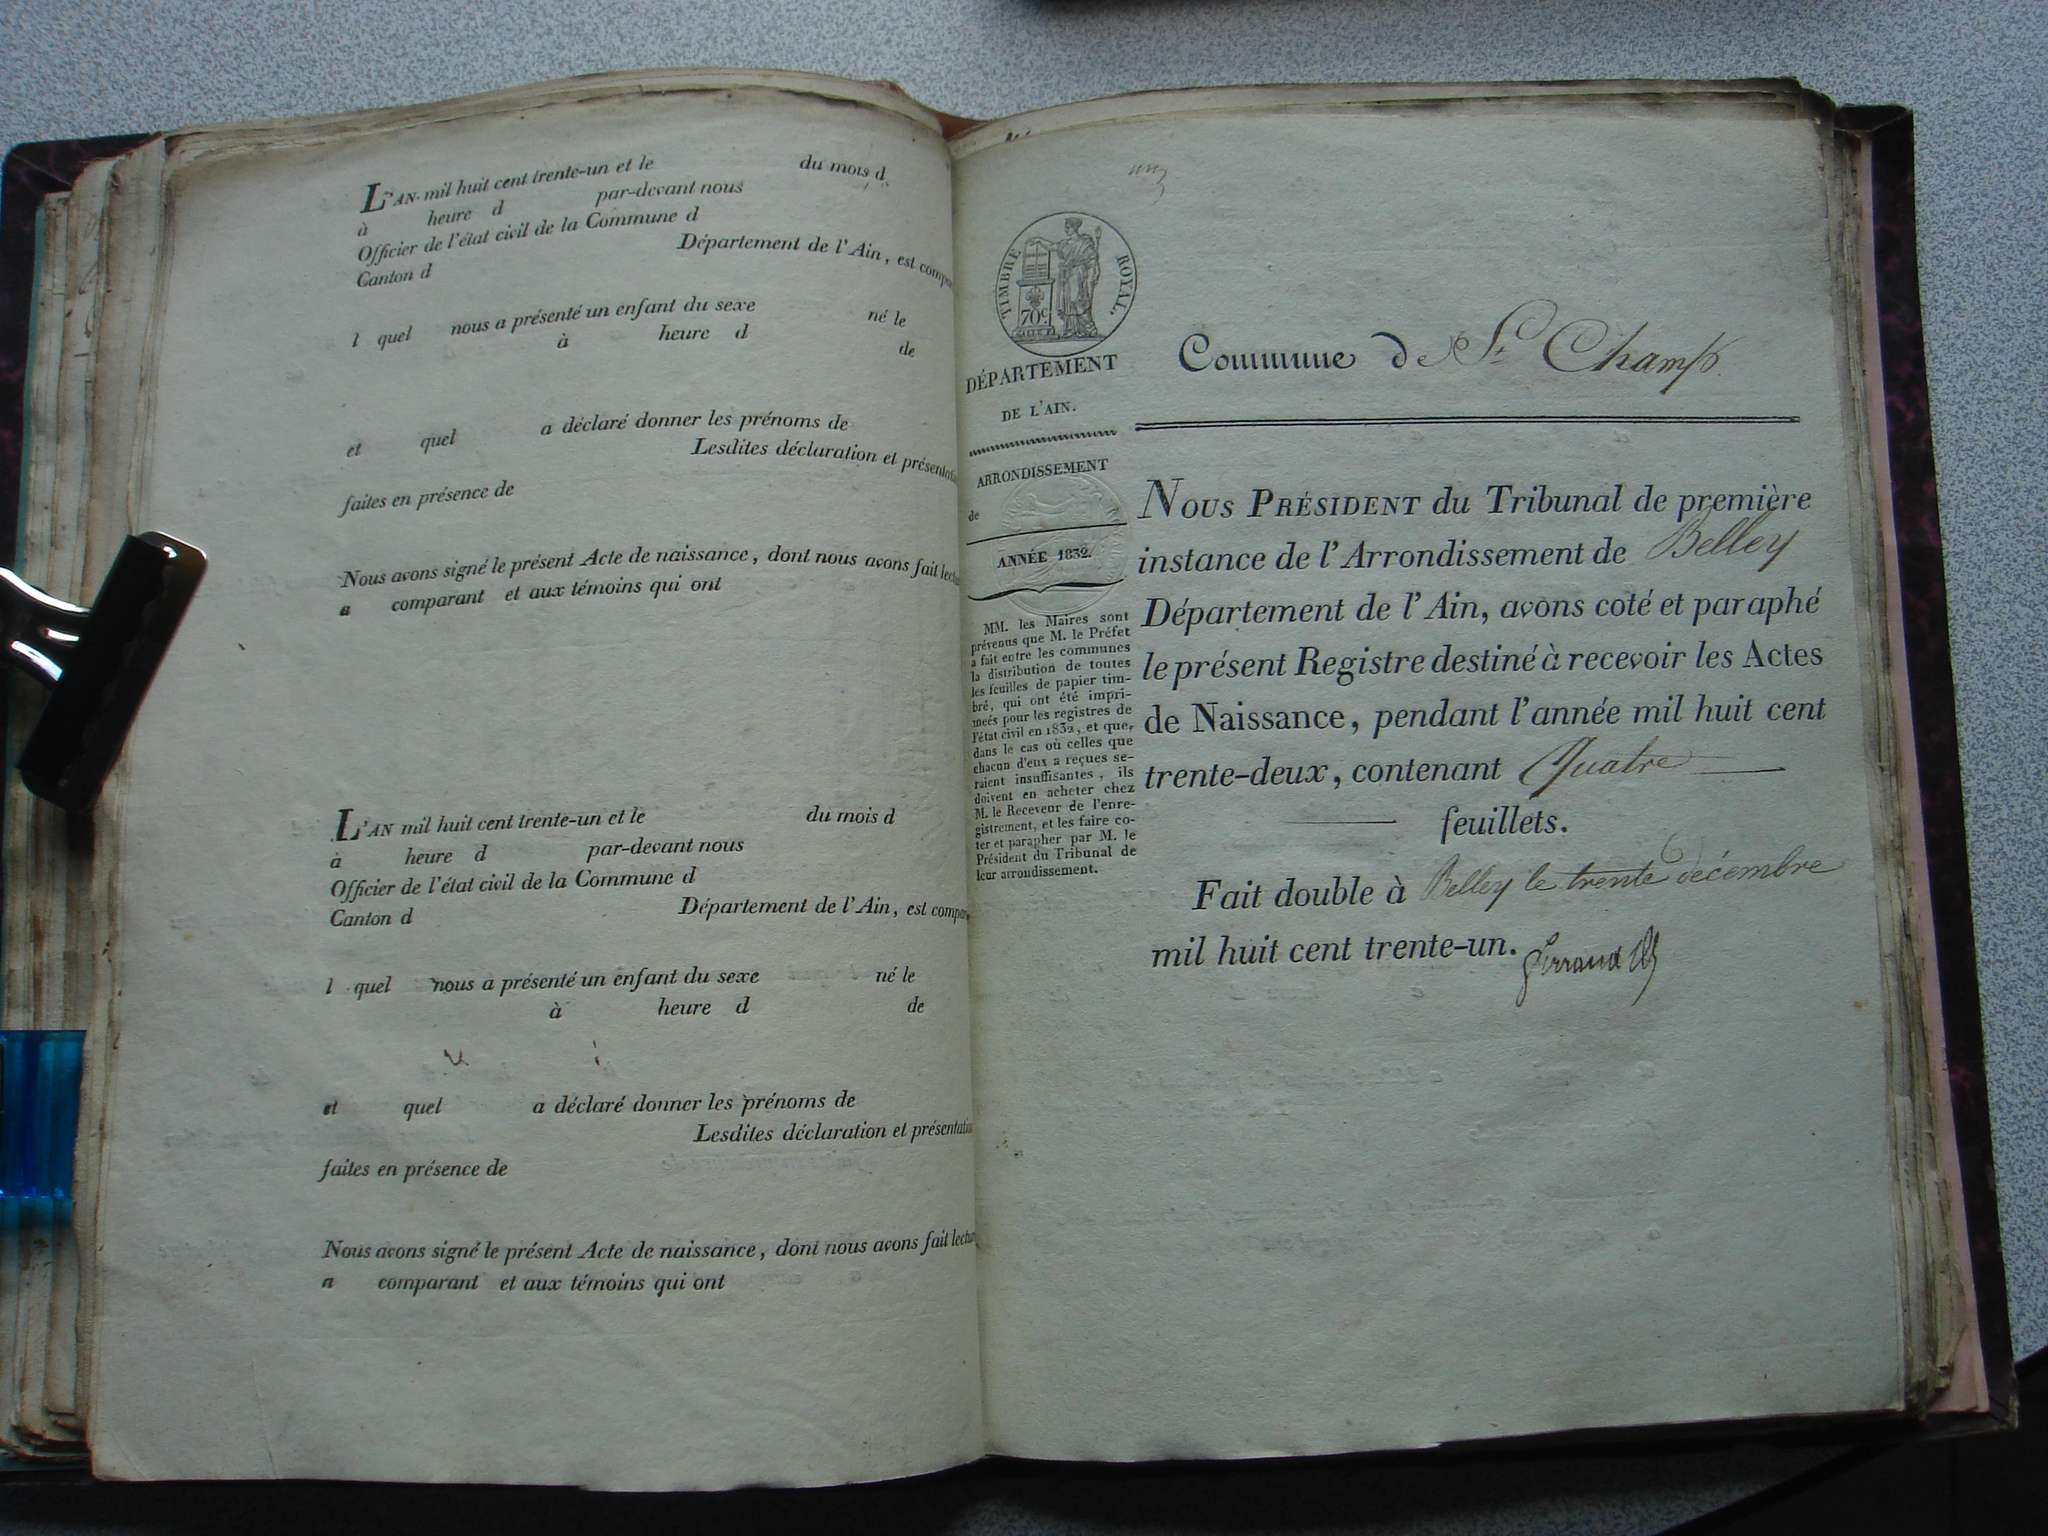 L'AN mil huit cent trente-un et le du mois d
à heure d par-devant nous
Officier de l'état civil de la Commune d
Canton d Département de l'Ain, est compar
l quel nous a présenté un enfant du sexe né le
à heure d de
et quel a déclaré donner les prénoms de
Lesdites déclaration et présentatio
faites en présence de
Nous avons signé le présent Acte de naissance, dont nous avons fait lectu
a comparant et aux témoins qui ont
L'AN mil huit cent trente-un et le du mois d
à heure d par-devant nous
Officier de l'état civil de la Commune d
Canton d Département de l'Ain, est compar
l quel nous a présenté un enfant du sexe né le
à heure d de
et quel a déclaré donner les prénoms de
Lesdites déclaration et présentatio
faites en présence de
Nous avons signé le présent Acte de naissance, dont nous avons fait lectu
a comparant et aux témoins qui ont
TIMBRE ROYAL.
70c
DÉPARTEMENT
DE L'AIN.
ARRONDISSEMENT
de
ANNÉE 1832.
MM. les Maires sont
prévenus que M. le Préfet
a fait entre les communes
la distribution de toutes
les feuilles de papier tim-
bré, qui ont été impri-
meés pour les registres de
l'état civil en 1832, et que,
dans le cas où celles que
chacun d'eux a reçues se-
raient insuffisantes, ils
doivent en acheter chez
M. le Receveur de l'enre-
gistrement, et les faire co-
ter et parapher par M. le
Président du Tribunal de
leur arrondissement.
Commune de St. Champ
NOUS PRÉSIDENT du Tribunal de première
instance de l'Arrondissement de Belley
Département de l'Ain, avons coté et paraphé
le présent Registre destiné à recevoir les Actes
de Naissance, pendant l'année mil huit cent
trente-deux, contenant Quatre
feuillets.
Fait double à Belley le trente décembre
mil huit cent trente-un.